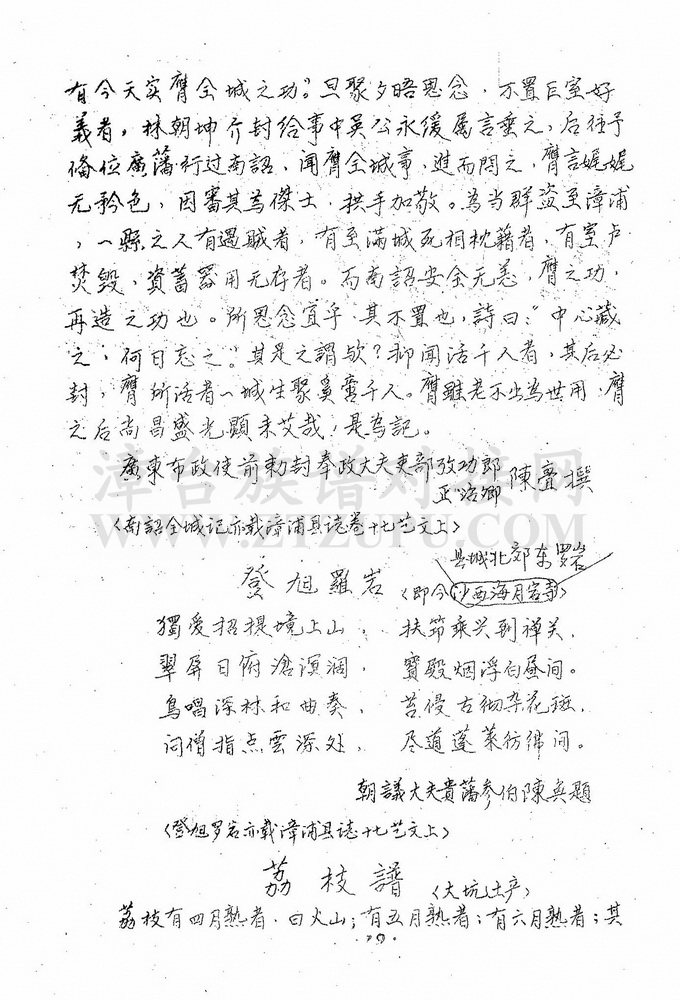 有今天实膺全城之功？旦聚夕晤思念，不置巨室好
義者，林朝坤介封给事中吴公永缓属言垂之，后往予
俻位廣藩行过南詔，闻膺全城事，進而問之，膺言娓娓
无矜色，因審其為傑士，拱手加敬。為当群盗至漳浦
，一縣之人有遇贼者，有至滿城死相枕藉者，有室卢
焚毁，資蓄器用无存者。而南詔安全无恙，膺之功，
再造之功也。所思念宜乎，其不置也，詩曰："中心藏
之，何日忘之"其是之謂欤？抑闻活千人者，其后必
封，膺所活者一城生聚奚啻千人。膺雖老不出為世用，膺
之后尚昌盛光顕未艾哉！是為記。
廣東布政使前勅封奉政大夫吏部攷功郎
正治卿
陳亹撰
〈南詔全城记亦载漳浦县誌卷十七艺文上〉
县城北郊东罗岩
登旭羅岩〈即今沙西海月岩寺〉
獨爱招提境上山，扶笻乘兴到禅关，
翠屏日俯滄溟濶，寶殿烟浮白昼间。
鳥唱深林和曲奏，苔侵古砌杂花斑，
问僧指点雲深处，尽道蓬莱彷彿间。
朝議大夫貴藩参伯陳奂題
〈登旭罗岩亦载漳浦县誌十七艺文上〉
荔枝譜〈大坑土产〉
荔枝有四月熟者，曰火山；有五月熟者；有六月熟者；其
漳台族谱对接网
WWW.ZTZUPU.COM